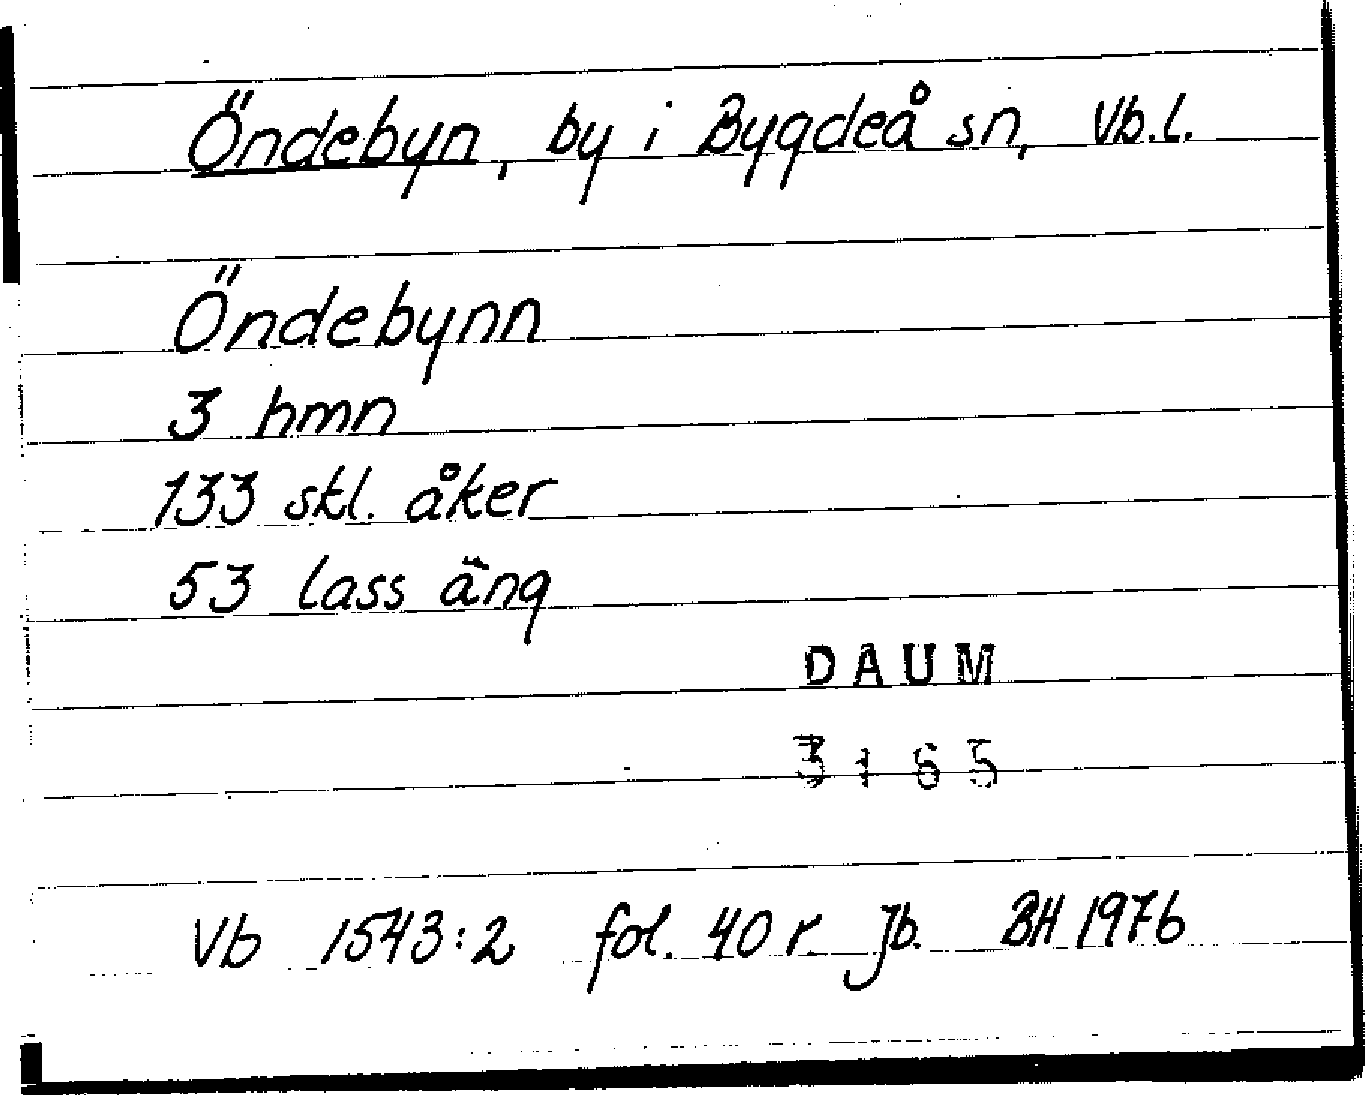 Öndebyn, by i Bygdeå sn, Vb.l.
Öndebynn
3 hmn
133 skl. åker
53 lass äng
DAUM
3165
Vb 1543:2 fol. 40 r. Jb. BH 1976